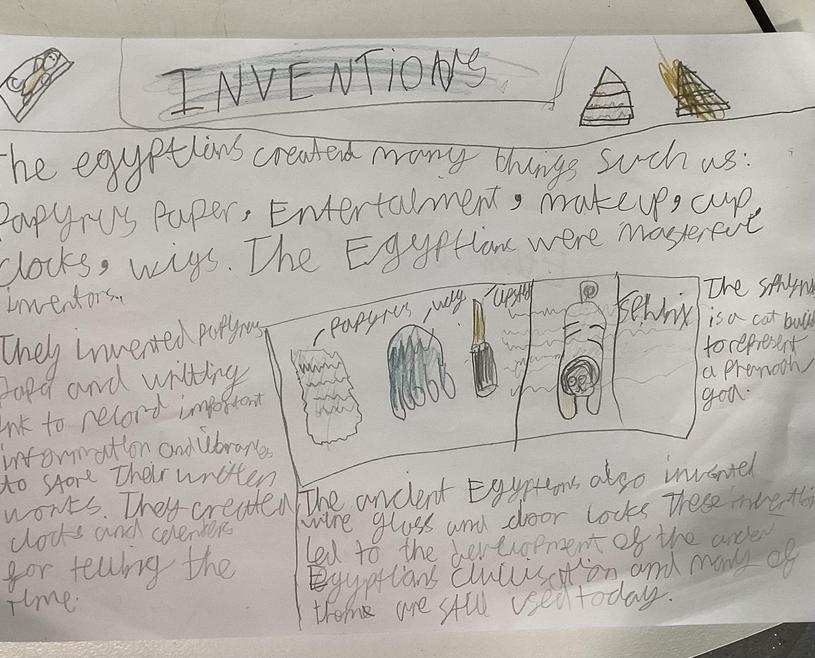 INVENTIONS
The egyptians created many things such as:
Papyrus Paper, Entertainment, makeup, cup,
clocks, wigs. The Egyptians were masterful
inventors.
They invented papyrus
and writing
ink to record important
information and libraries
to store their written
works. They created
clocks and
for telling the
time.
papyrus
wig
Sphnix
The sphynx
is a cat build
to represent
a
god.
The ancient Egyptions also invented
wire glass and door locks These invention
led to the development of the
Egyptians and many of
are still used today.